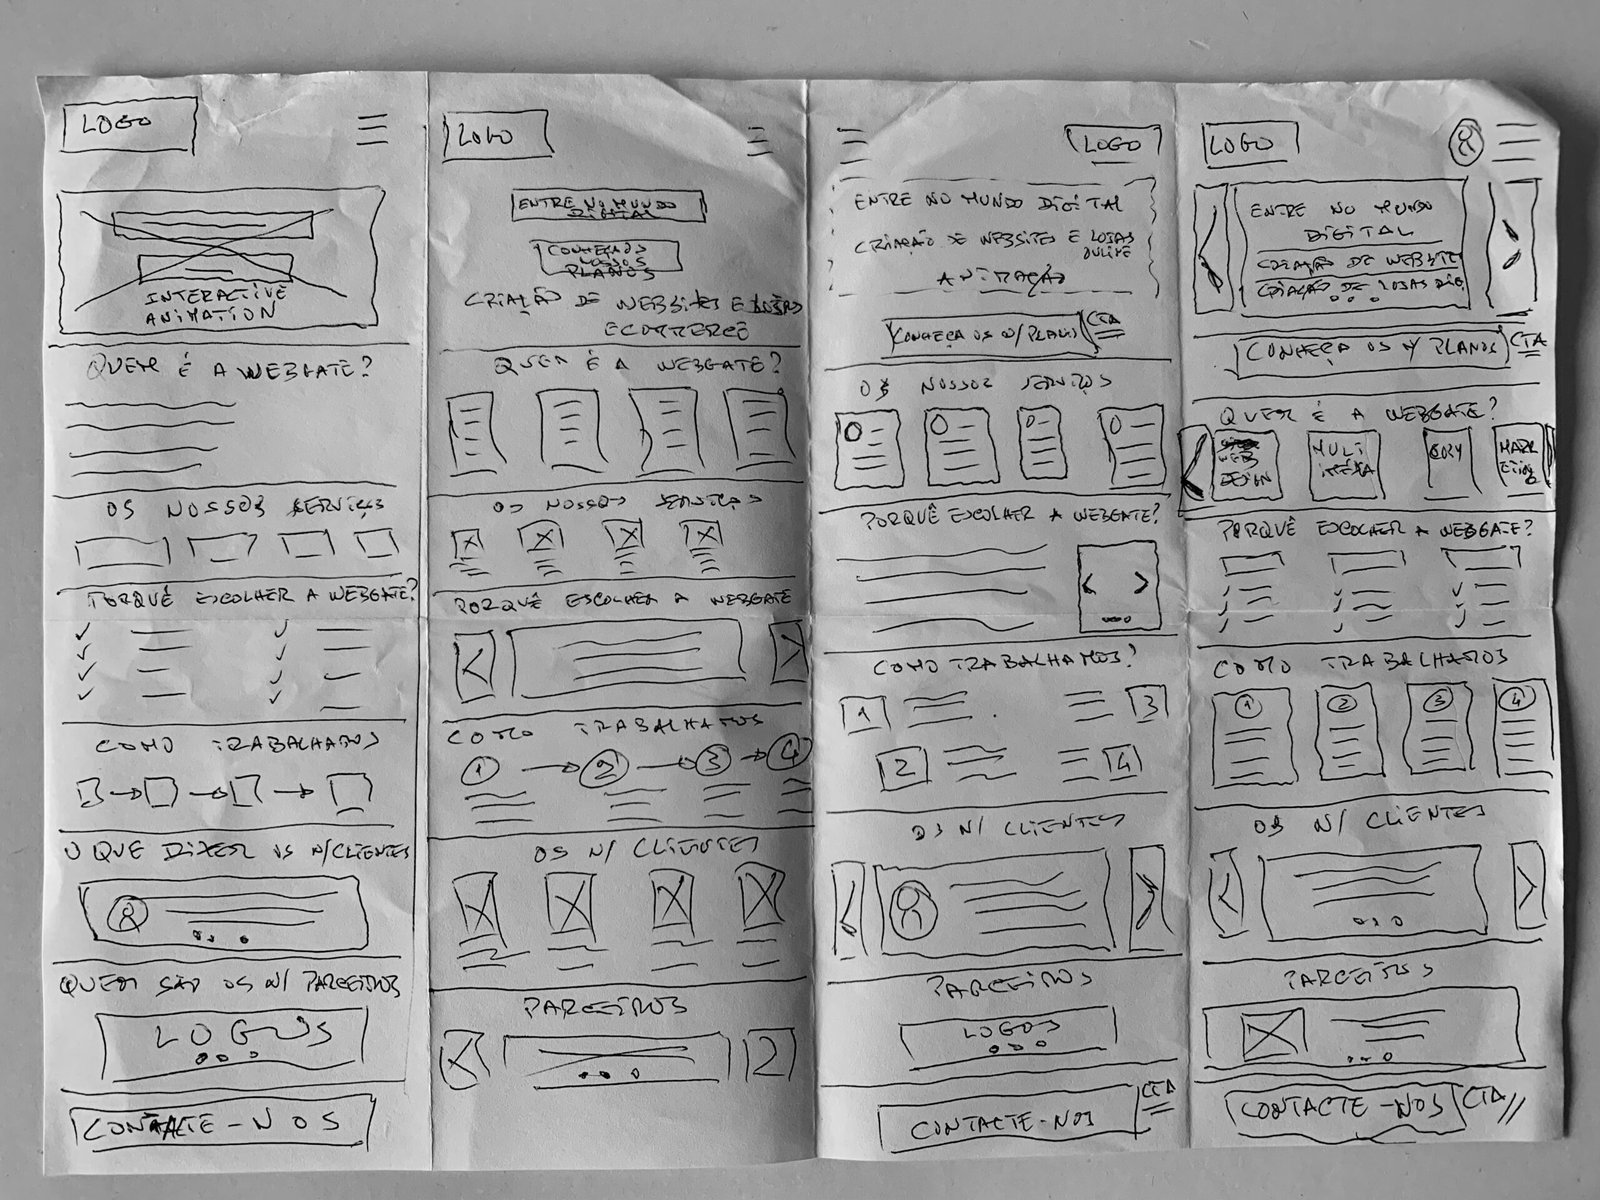 LOGO
INTERACTIVE
ANIMATION
QUEM É A WEBGATE?
OS NOSSOS SERVIÇOS
PORQUÊ ESCOLHER A WEBGATE?
COMO TRABALHAMOS
O QUE DIZEM OS N/CLIENTES
QUEM SÃO OS N/ PARCEIROS
LOGOS
CONTACTE-NOS
LOGO
ENTRE NO MUNDO
DIGITAL
CONHEÇA OS
NOSSOS
PLANOS
CRIAÇÃO DE WEBSITES E LOJAS
ECOMMERCE
QUEM É A WEBGATE?
OS NOSSOS SERVIÇOS
PORQUÊ ESCOLHER A WEBGATE
COMO TRABALHAMOS
1 2 3 4
OS N/ CLIENTES
PARCEIROS
LOGO
ENTRE NO MUNDO DIGITAL
CRIAÇÃO DE WEBSITES E LOJAS
ONLINE
ANIMAÇÃO
CONHEÇA OS N/ PLANOS CTA
OS NOSSOS SERVIÇOS
PORQUÊ ESCOLHER A WEBGATE?
COMO TRABALHAMOS?
1 3
2 4
OS N/ CLIENTES
PARCEIROS
LOGOS
CONTACTE-NOS CTA
LOGO
ENTRE NO MUNDO
DIGITAL
CRIAÇÃO DE WEBSITE
CRIAÇÃO DE LOJAS DIG.
CONHEÇA OS N/ PLANOS CTA
QUEM É A WEBGATE?
WEB
DESIGN
MULTI
MÉDIA
COPY
MARK
ETING
PORQUÊ ESCOLHER A WEBGATE?
COMO TRABALHAMOS
1 2 3 4
OS N/ CLIENTES
PARCEIROS
CONTACTE-NOS CTA